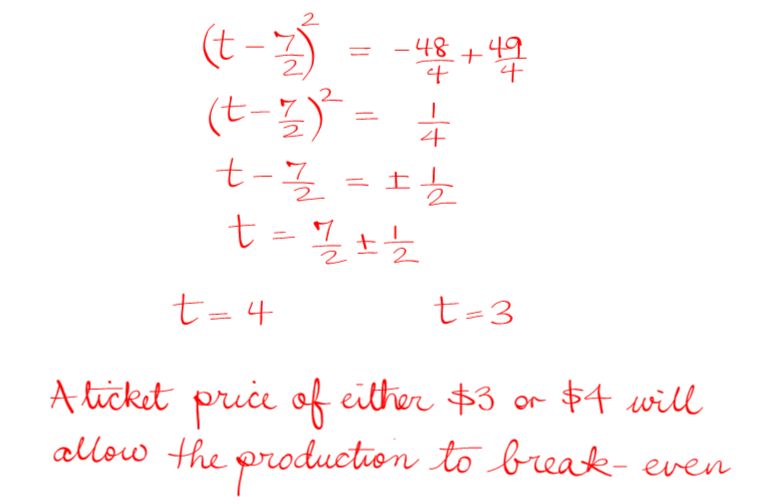 (t - 7/2)² = -48/4 + 49/4
(t - 7/2)² = 1/4
t - 7/2 = ± 1/2
t = 7/2 ± 1/2
t = 4 t = 3
A ticket price of either $3 or $4 will
allow the production to break-even